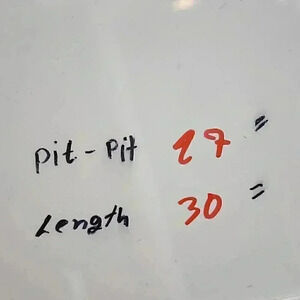 pit - pit 27 "
Length 30 "